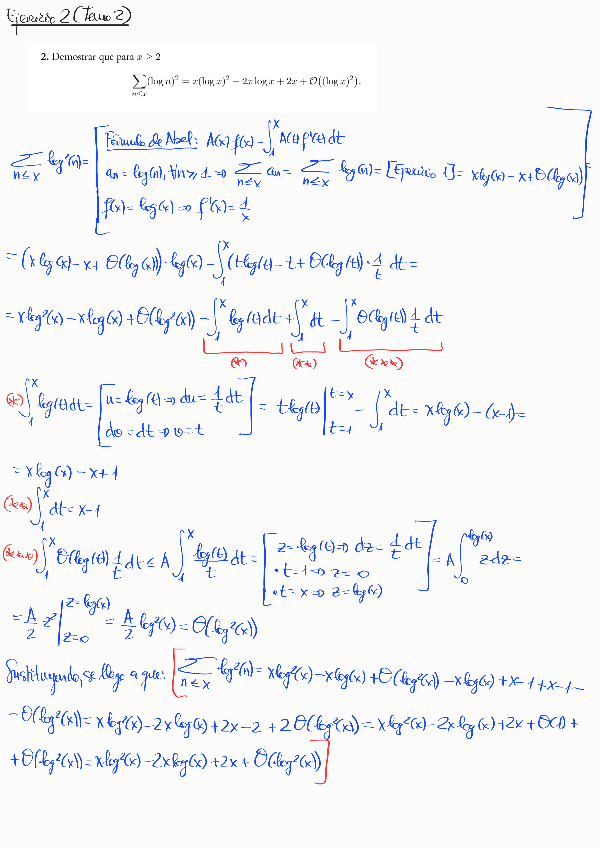 Ejercicio 2 (Tema 2)
2. Demostrar que para x ≥ 2
∑_{n≤x} (log n)² = x(log x)² − 2x log x + 2x + O((log x)²).
∑_{n≤x} log²(n) = [Fórmula de Abel: A(x) f(x) − ∫_1^x A(t) f'(t) dt
a_n = log(n), ∀n ≥ 1 ⇒ ∑_{n≤x} a_n = ∑_{n≤x} log(n) = [Ejercicio 1] = x log(x) − x + O(log(x))
f(x) = log(x) ⇒ f'(x) = 1/x]
= (x log(x) − x + O(log(x))) · log(x) − ∫_1^x (t log(t) − t + O(log(t)) · 1/t dt =
= x log²(x) − x log(x) + O(log²(x)) − ∫_1^x log(t) dt + ∫_1^x dt − ∫_1^x O(log(t)) 1/t dt
(*) (**) (***)
(*) ∫_1^x log(t) dt = [u = log(t) ⇒ du = 1/t dt
dv = dt ⇒ v = t] = t log(t) |_{t=1}^{t=x} − ∫_1^x dt = x log(x) − (x−1) =
= x log(x) − x + 1
(**) ∫_1^x dt = x − 1
(***) ∫_1^x O(log(t)) 1/t dt ≤ A ∫_1^x log(t)/t dt = [z = log(t) ⇒ dz = 1/t dt
• t = 1 ⇒ z = 0
• t = x ⇒ z = log(x)] = A ∫_0^{log(x)} z dz =
= A/2 z² |_{z=0}^{z=log(x)} = A/2 log²(x) = O(log²(x))
Sustituyendo, se llega a que: [∑_{n≤x} log²(n) = x log²(x) − x log(x) + O(log²(x)) − x log(x) + x − 1 + x − 1 −
− O(log²(x)) = x log²(x) − 2x log(x) + 2x − 2 + 2 O(log²(x)) = x log²(x) − 2x log(x) + 2x + O(1) +
+ O(log²(x)) = x log²(x) − 2x log(x) + 2x + O(log²(x))]